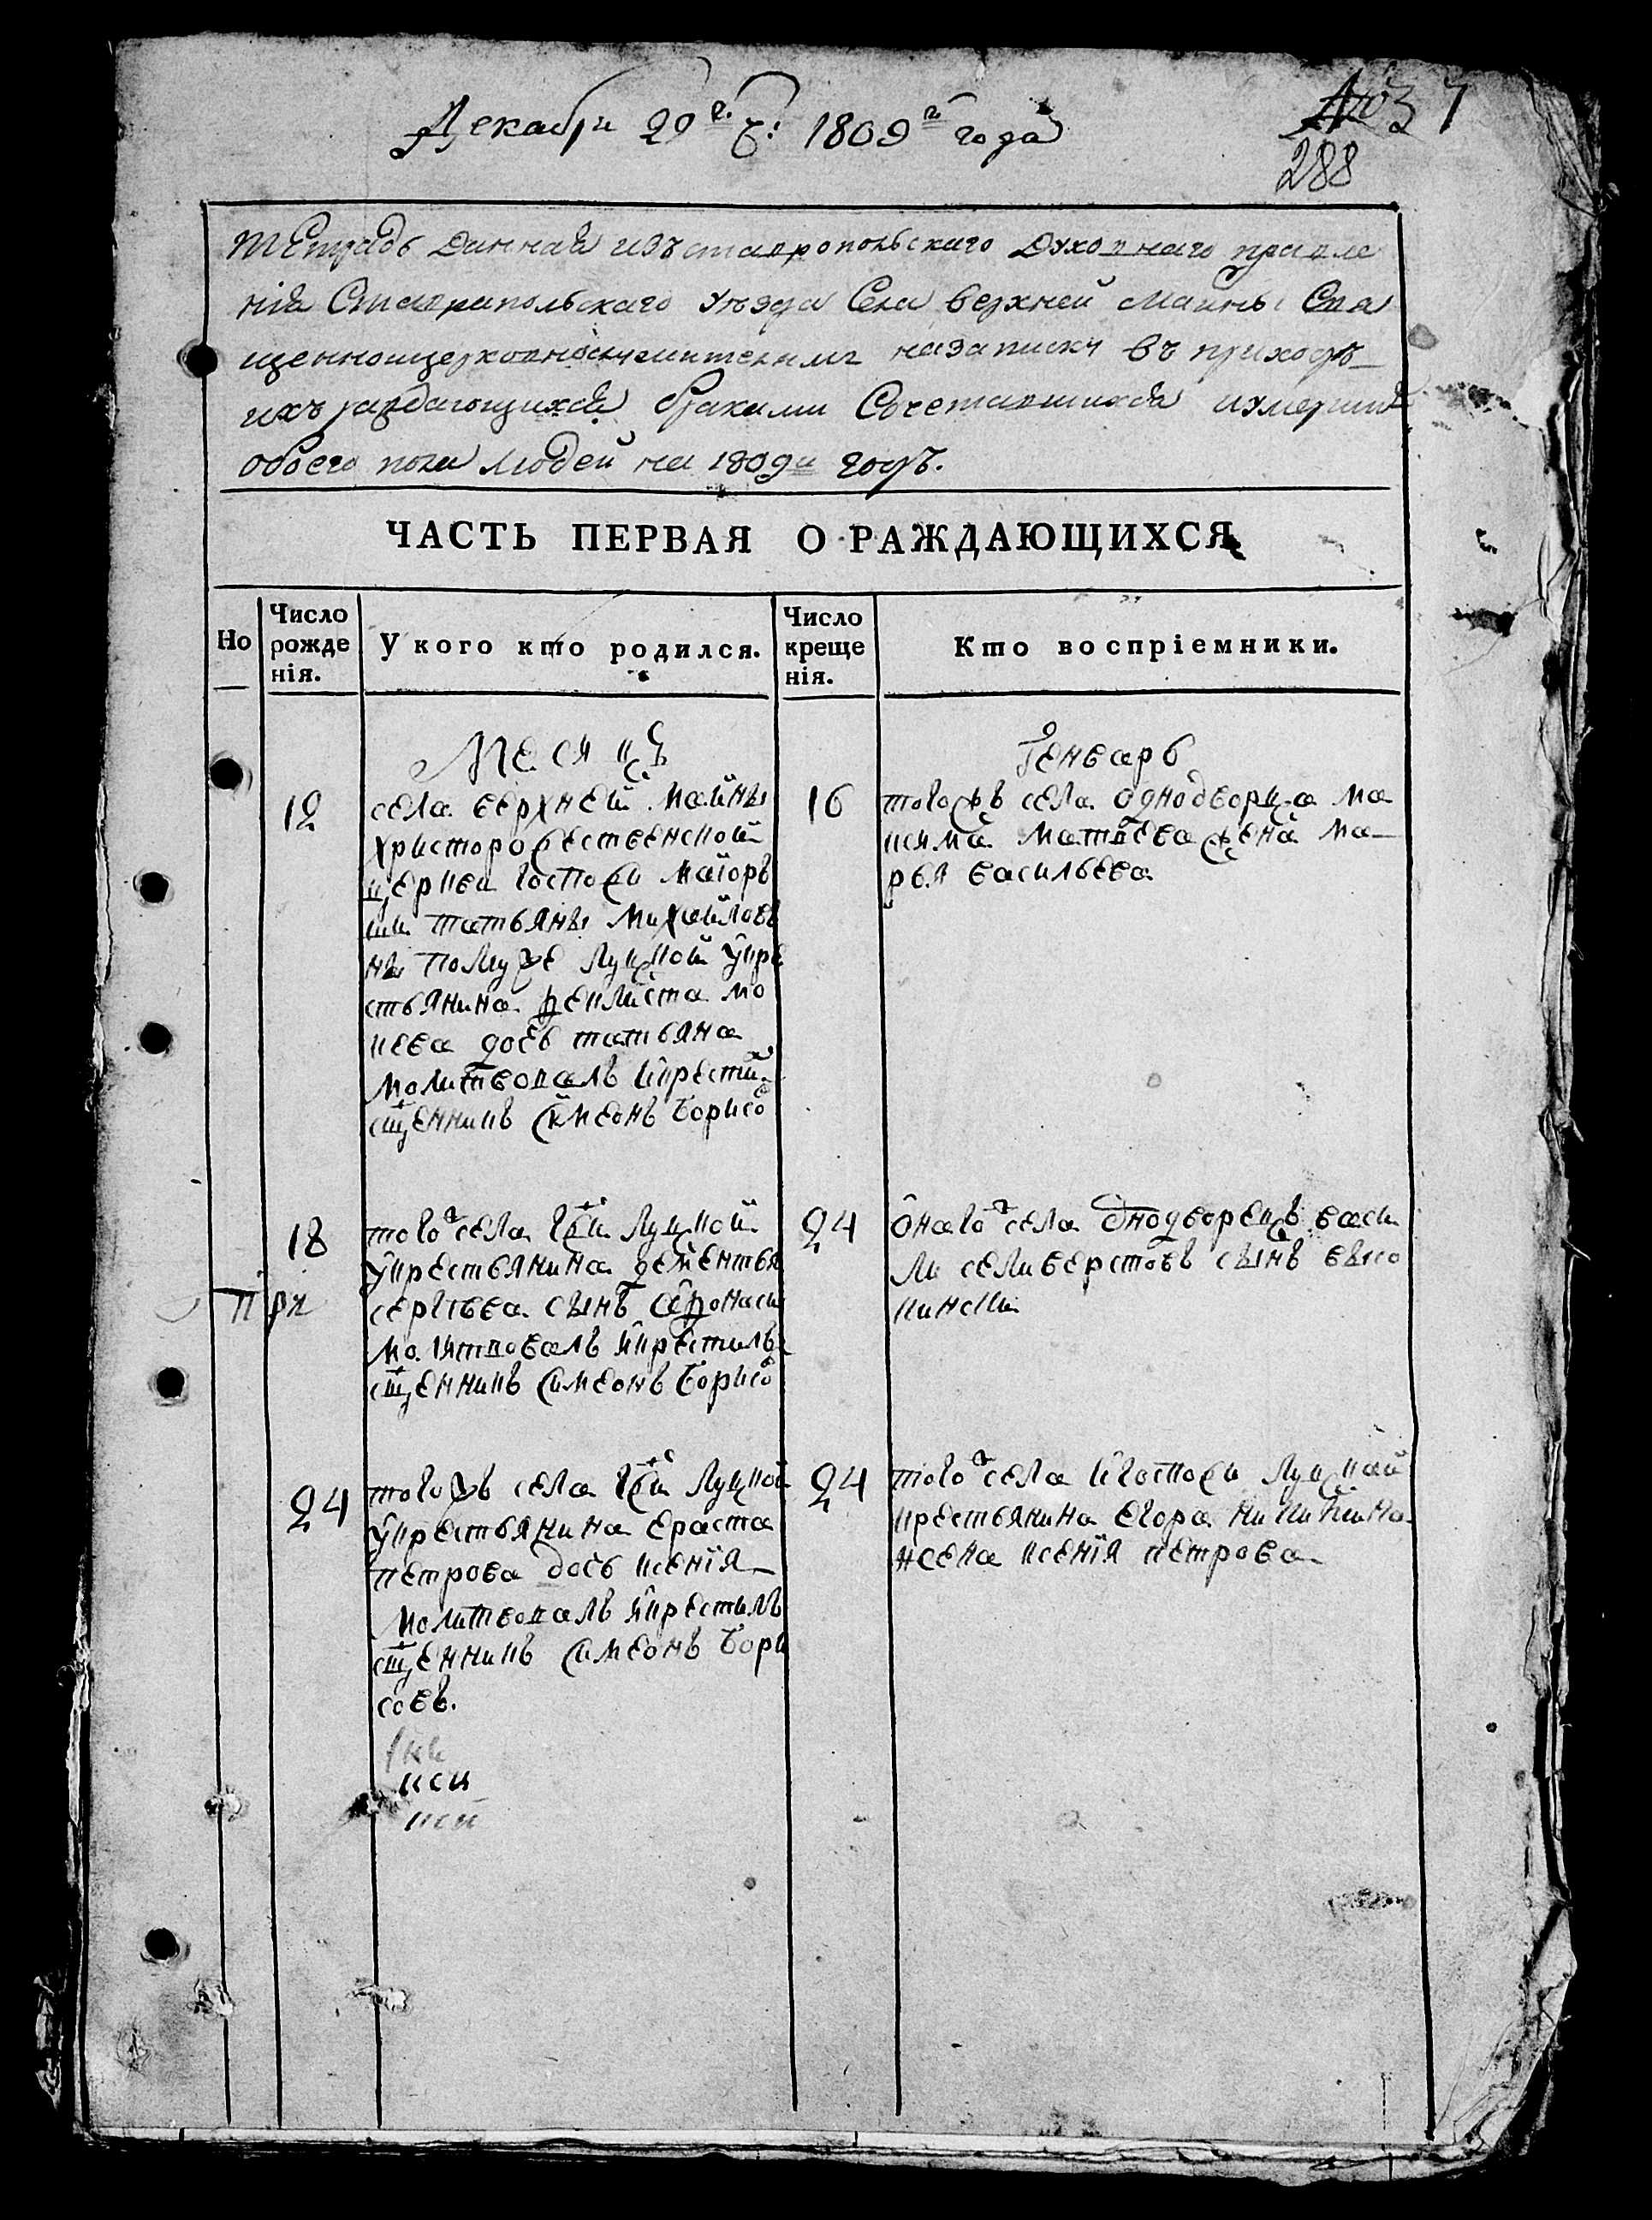 Декабря 29 г. д: 1809 го года
288
Тетрадь Данная изъ ставропольскаго Духовнаго правле
нія Ставрапольскаго уѣзда Села верхней Маины Свя
щенноицерковнослужителямъ назаписку въ приходѣ
ихъ раждающихся браками Сочетавшихся иумерших
обоего пола Людей на 1809й годъ.
ЧАСТЬ ПЕРВАЯ О РАЖДАЮЩИХСЯ
Но
Число рожде нія.
У кого кто родился.
Число креще нія.
Кто воспріемники.
Месяцъ
Генварь
12
села верхней маины
христорождественской
церкви госпожи маиоръ
ши татьяны михаиловъ
ны помуже луцкой укре
стьянина феклиста мо
кева дочь татьяна
молитвовалъ икрести
сщенникъ симеонъ борисо
16
тогожъ села однодворца ма
ксима матвева жена ма
рья васильева
18
того ж села гжи луцкой
укрестьянина дементья
сергѣева сынъ афонаси
молитвовалъ икрестилъ
сщенникъ симеонъ борисо
24
онаго ж села однодворецъ васи
ли селиверстовъ сынъ высо
кински
При
24
тогожъ села гжи луцкой
укрестьянина ераста
петрова дочь ксенія
молитвовалъ икрестилъ
сщенникъ симеонъ бори
совъ.
24
того ж села игоспожи луцкай
крестьянина егора никитина
жена ксенія петрова
кси
кси